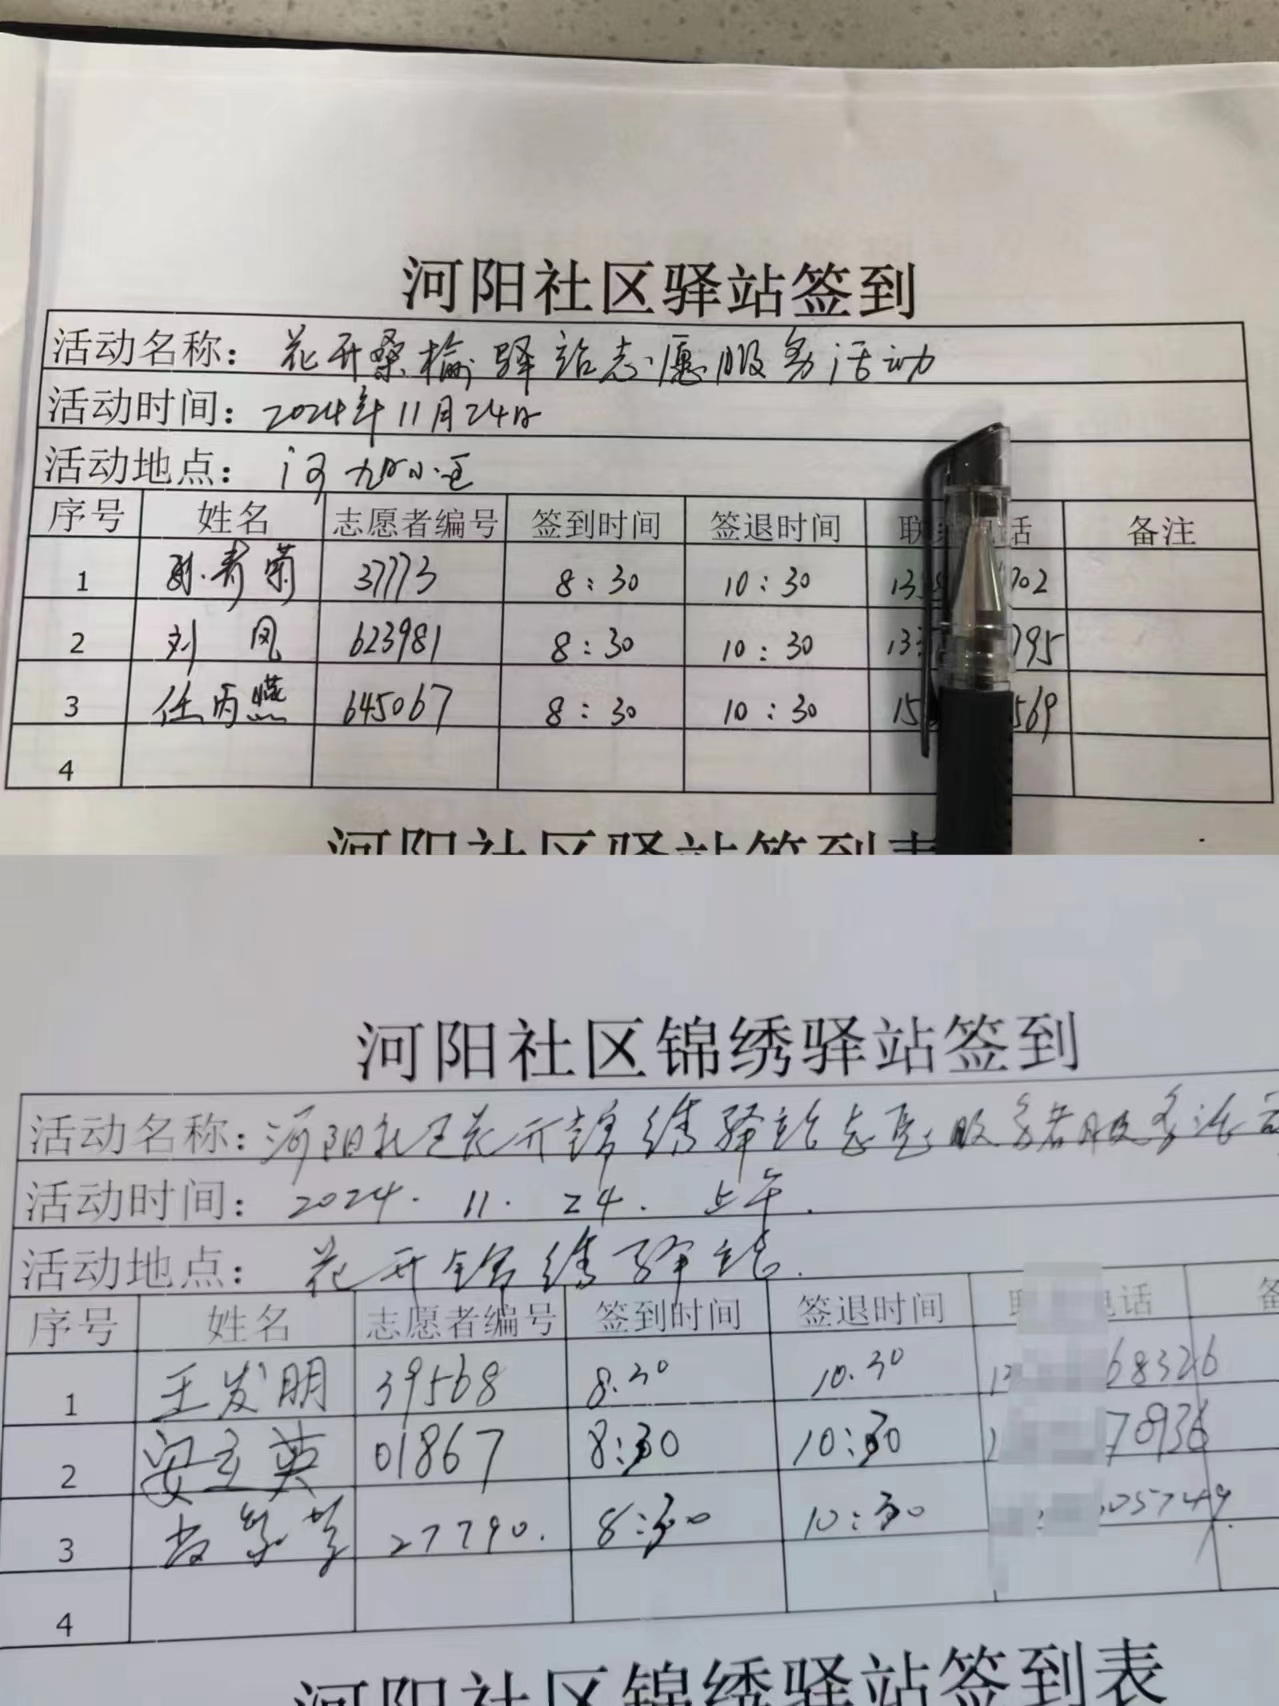 河阳社区驿站签到
活动名称：花开桑榆驿站志愿服务活动
活动时间：2024年11月24日
活动地点：河阳小区
序号 姓名 志愿者编号 签到时间 签退时间 联 话 备注
1 孙秀菊 37773 8:30 10:30 13 702
2 刘凤 623981 8:30 10:30 133 795
3 任丙燕 645067 8:30 10:30 15 569
4
河阳社区驿站签到表
河阳社区锦绣驿站签到
活动名称：河阳社区花开锦绣驿站志愿服务者服务活动
活动时间：2024.11.24.上午.
活动地点：花开锦绣驿站.
序号 姓名 志愿者编号 签到时间 签退时间 电话 备
1 王发明 39568 8.30 10.30 1 68326
2 安立英 01867 8:30 10:30 1 78936
3 27790. 8:30 10:30 05749
4
河阳社区锦绣驿站签到表